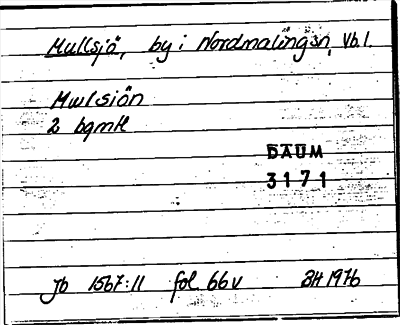 Mullsjö, by i Nordmalingsn, Vb.l.
Mwlsiön
2 bgmtl
DAUM
3171
Jb 1567:11 fol. 66v BH 1976